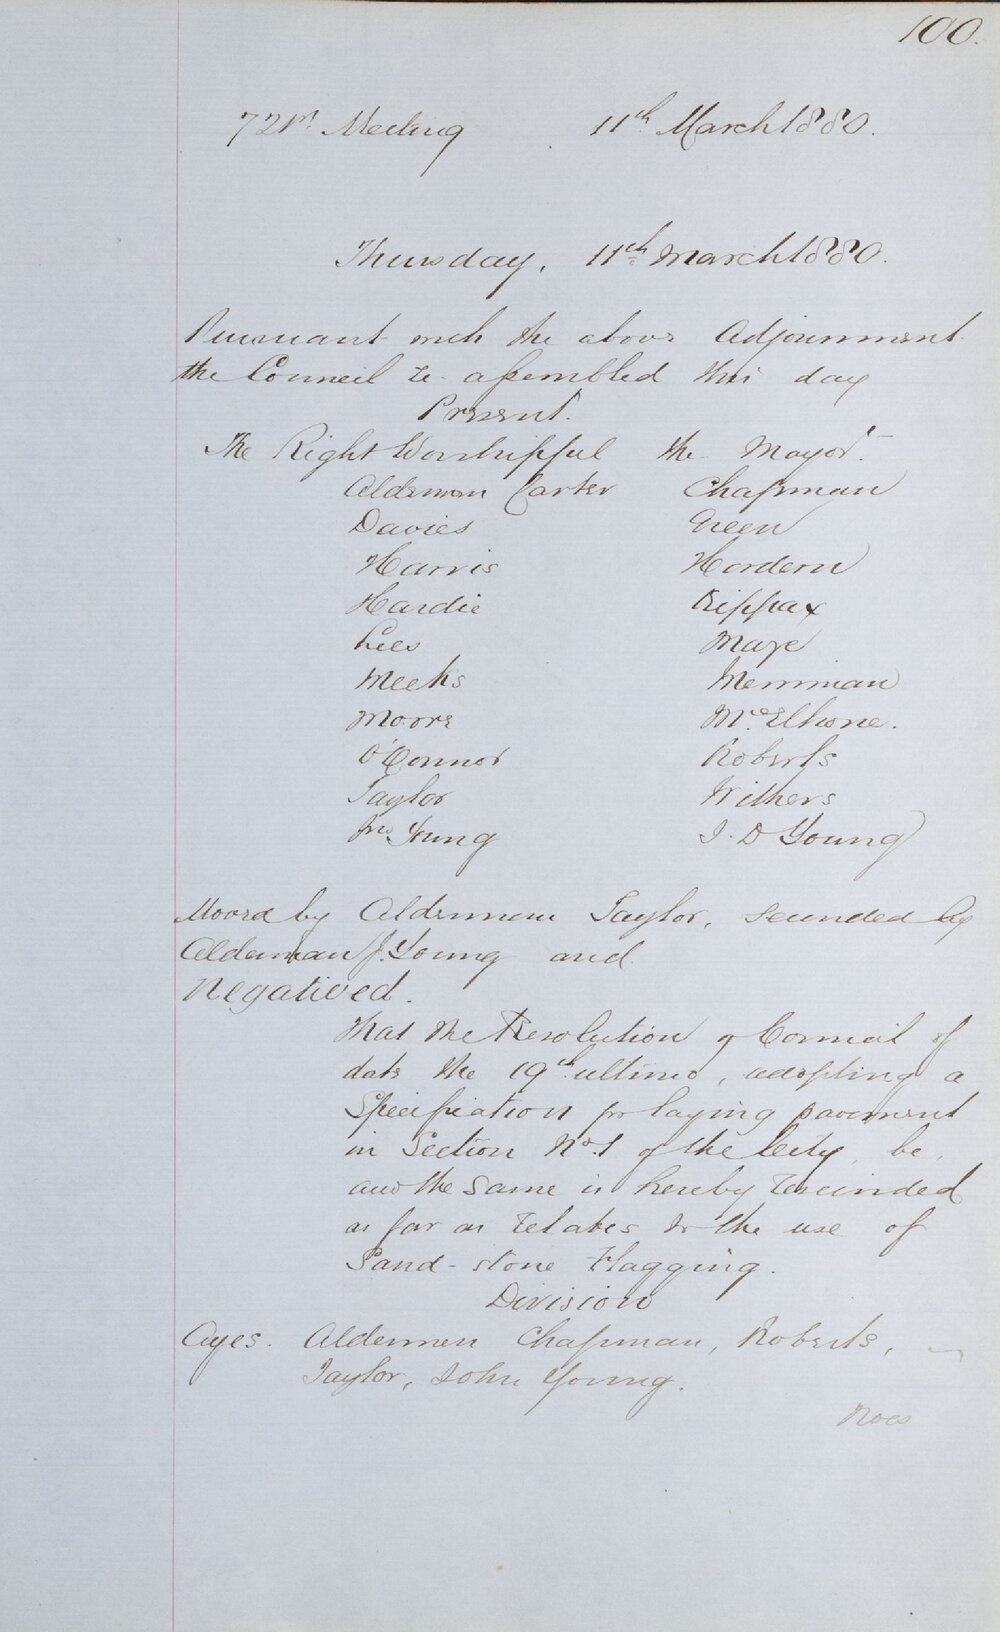 100.
721st Meeting 11th March 1880.
Thursday, 11th March 1880.
Pursuant with the above Adjournment
the Council re-assembled this day
Present.
The Right Worshipful the Mayor.
Alderman Carter Chapman
Davies Green
Harris Hordern
Hardie Kippax
Lees Maze
Meeks Merriman
Moore McElhone.
O'Connor Roberts
Taylor Withers
Jno Young J. D Young
Moved by Alderman Taylor, seconded by
Alderman J. Young and
Negatived.
That the Resolution of Council of
date the 19th ultimo, adopting a
Specification for laying pavement
in Section No. 1 of the City, be,
and the same is hereby rescinded
as far as relates to the use of
Sand-stone Flagging.
Division
Ayes. Aldermen Chapman, Roberts,
Taylor, John Young.
Noes